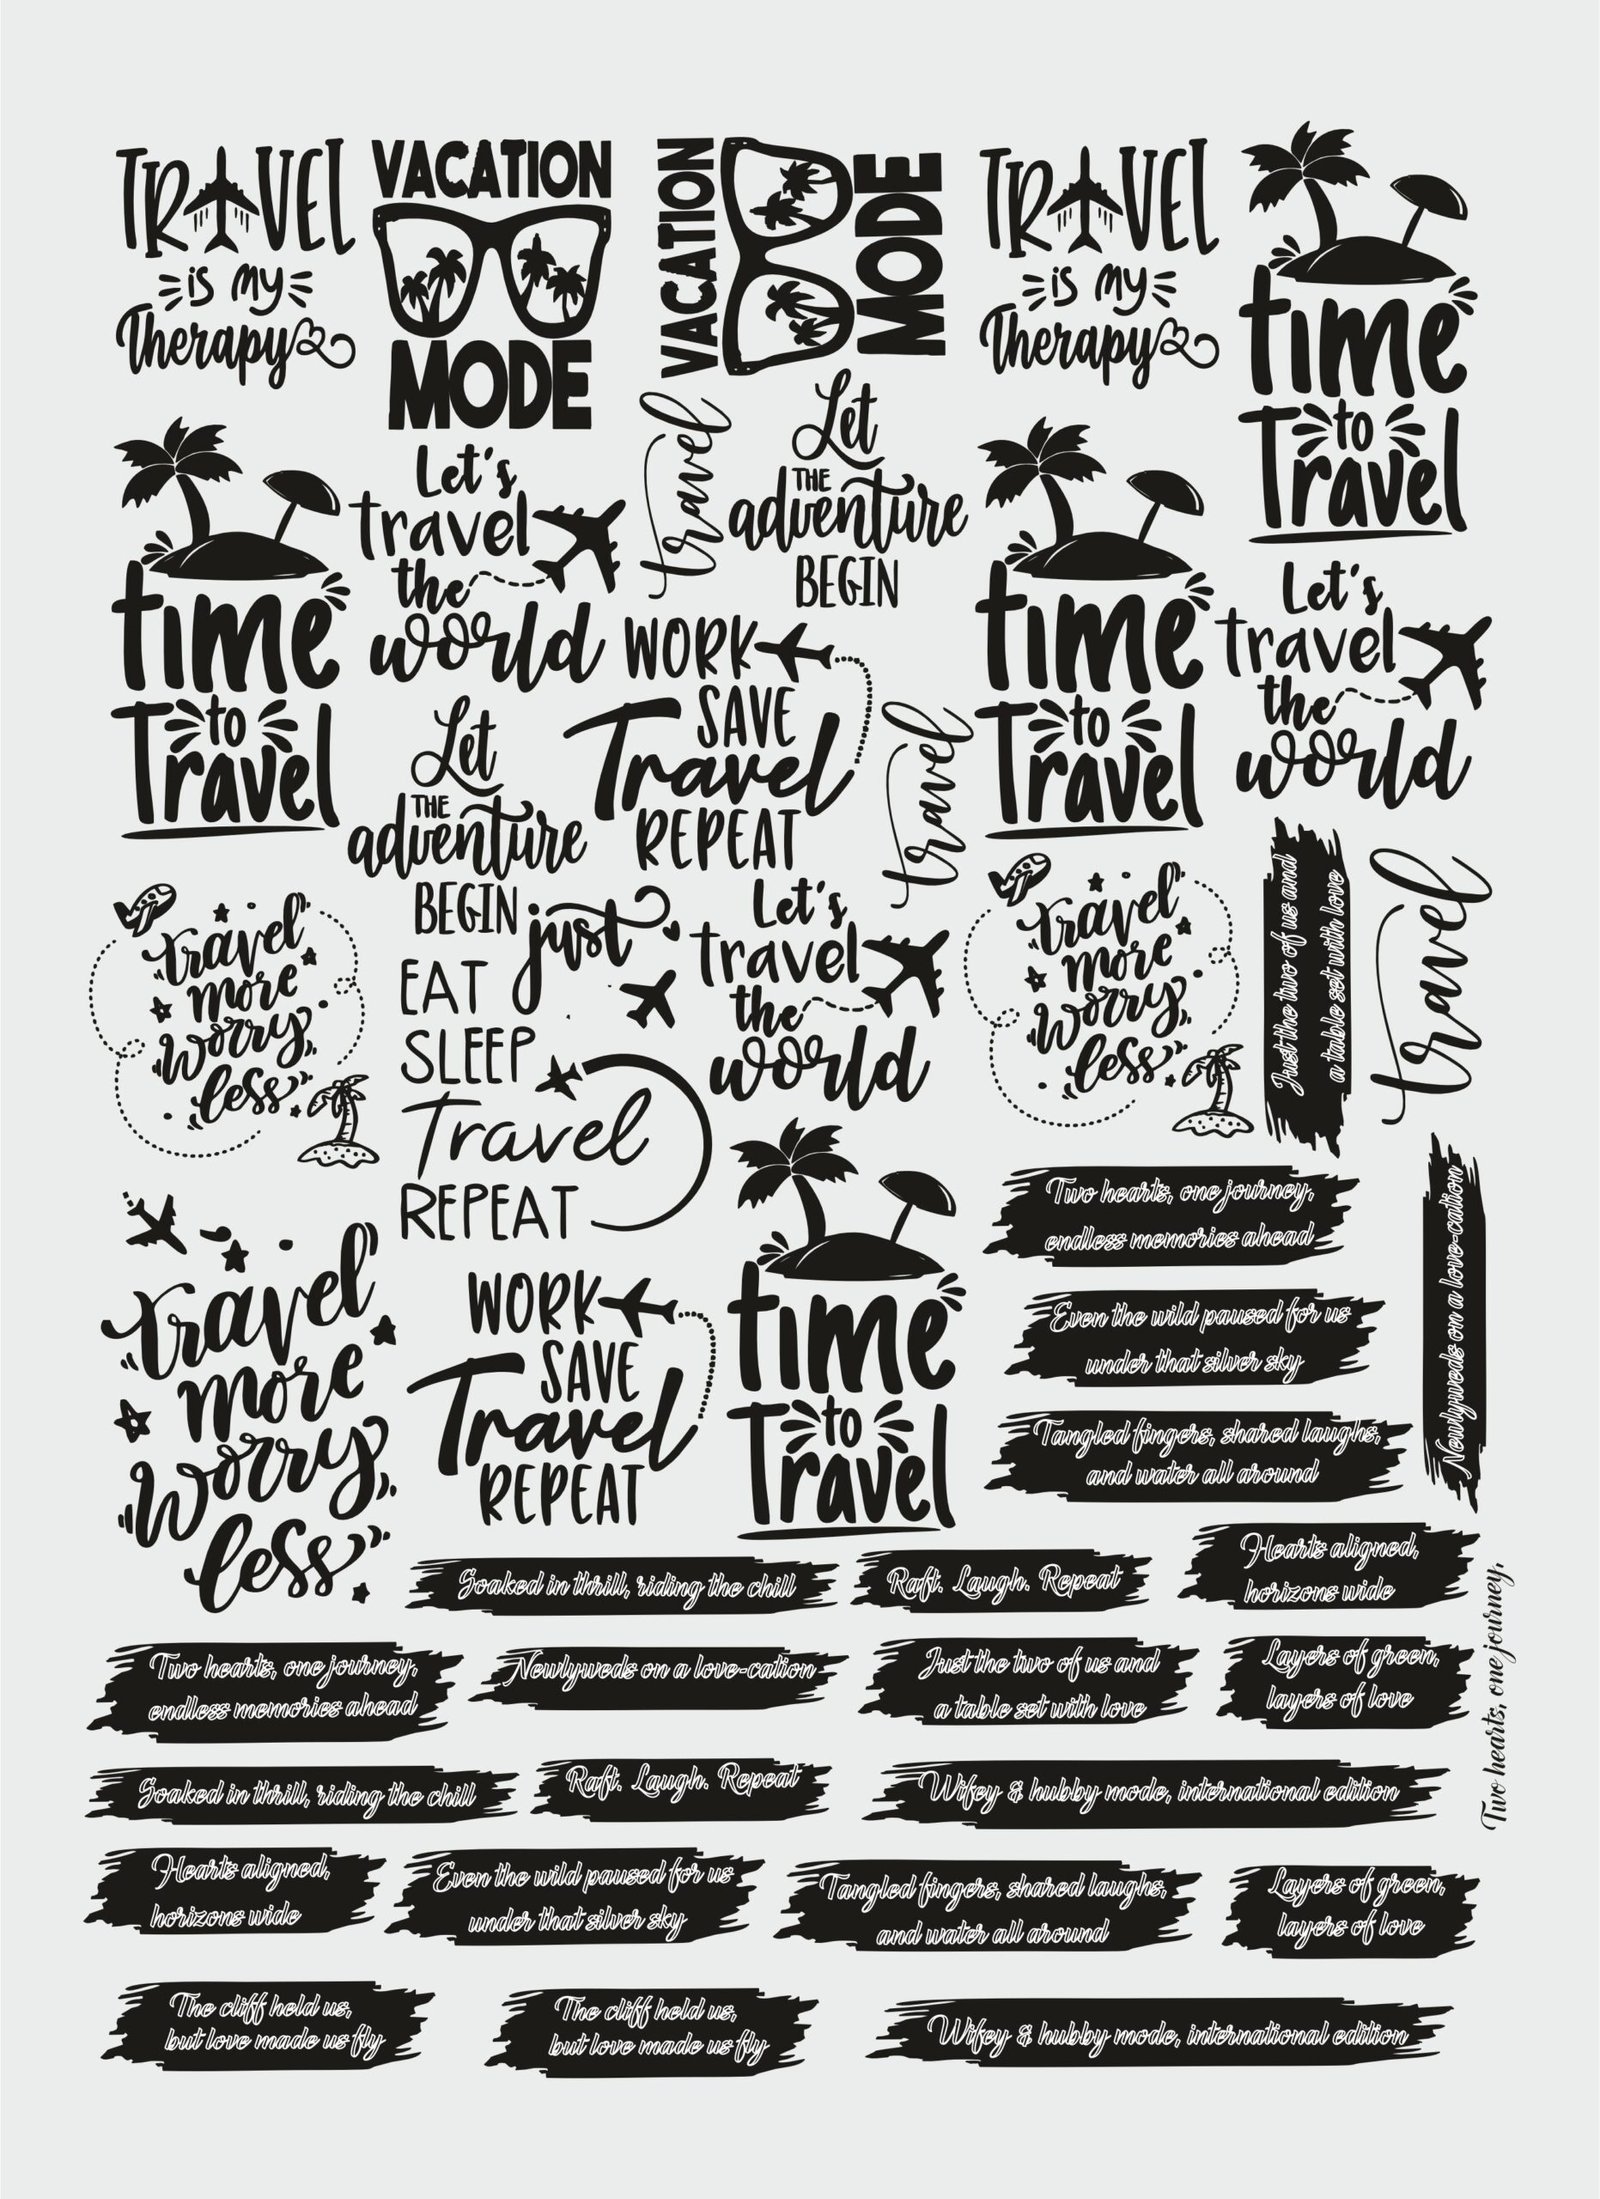 TRAVEL
is my
Therapy
VACATION
MODE
VACATION
MODE
TRAVEL
is my
Therapy
time
to
Travel
time
to
Travel
Let's
travel
the
world
travel
Let
THE
adventure
BEGIN
time
to
Travel
Let's
travel
the
world
Let
THE
adventure
BEGIN
WORK
SAVE
Travel
REPEAT
travel
travel
more
worry
less
just
EAT
SLEEP
Travel
REPEAT
Let's
travel
the
world
travel
more
worry
less
Just the two of us and
a table set with love
travel
travel
more
worry
less
WORK
SAVE
Travel
REPEAT
time
to
Travel
Two hearts, one journey,
endless memories ahead
Even the wild paused for us
under that silver sky
Tangled fingers, shared laughs,
and water all around
Newlyweds on a love-cation
Soaked in thrill, riding the chill
Raft. Laugh. Repeat
Hearts aligned,
horizons wide
Two hearts, one journey,
endless memories ahead
Newlyweds on a love-cation
Just the two of us and
a table set with love
Layers of green,
layers of love
Two hearts, one journey,
Soaked in thrill, riding the chill
Raft. Laugh. Repeat
Wifey & hubby mode, international edition
Hearts aligned,
horizons wide
Even the wild paused for us
under that silver sky
Tangled fingers, shared laughs,
and water all around
Layers of green,
layers of love
The cliff held us,
but love made us fly
The cliff held us,
but love made us fly
Wifey & hubby mode, international edition